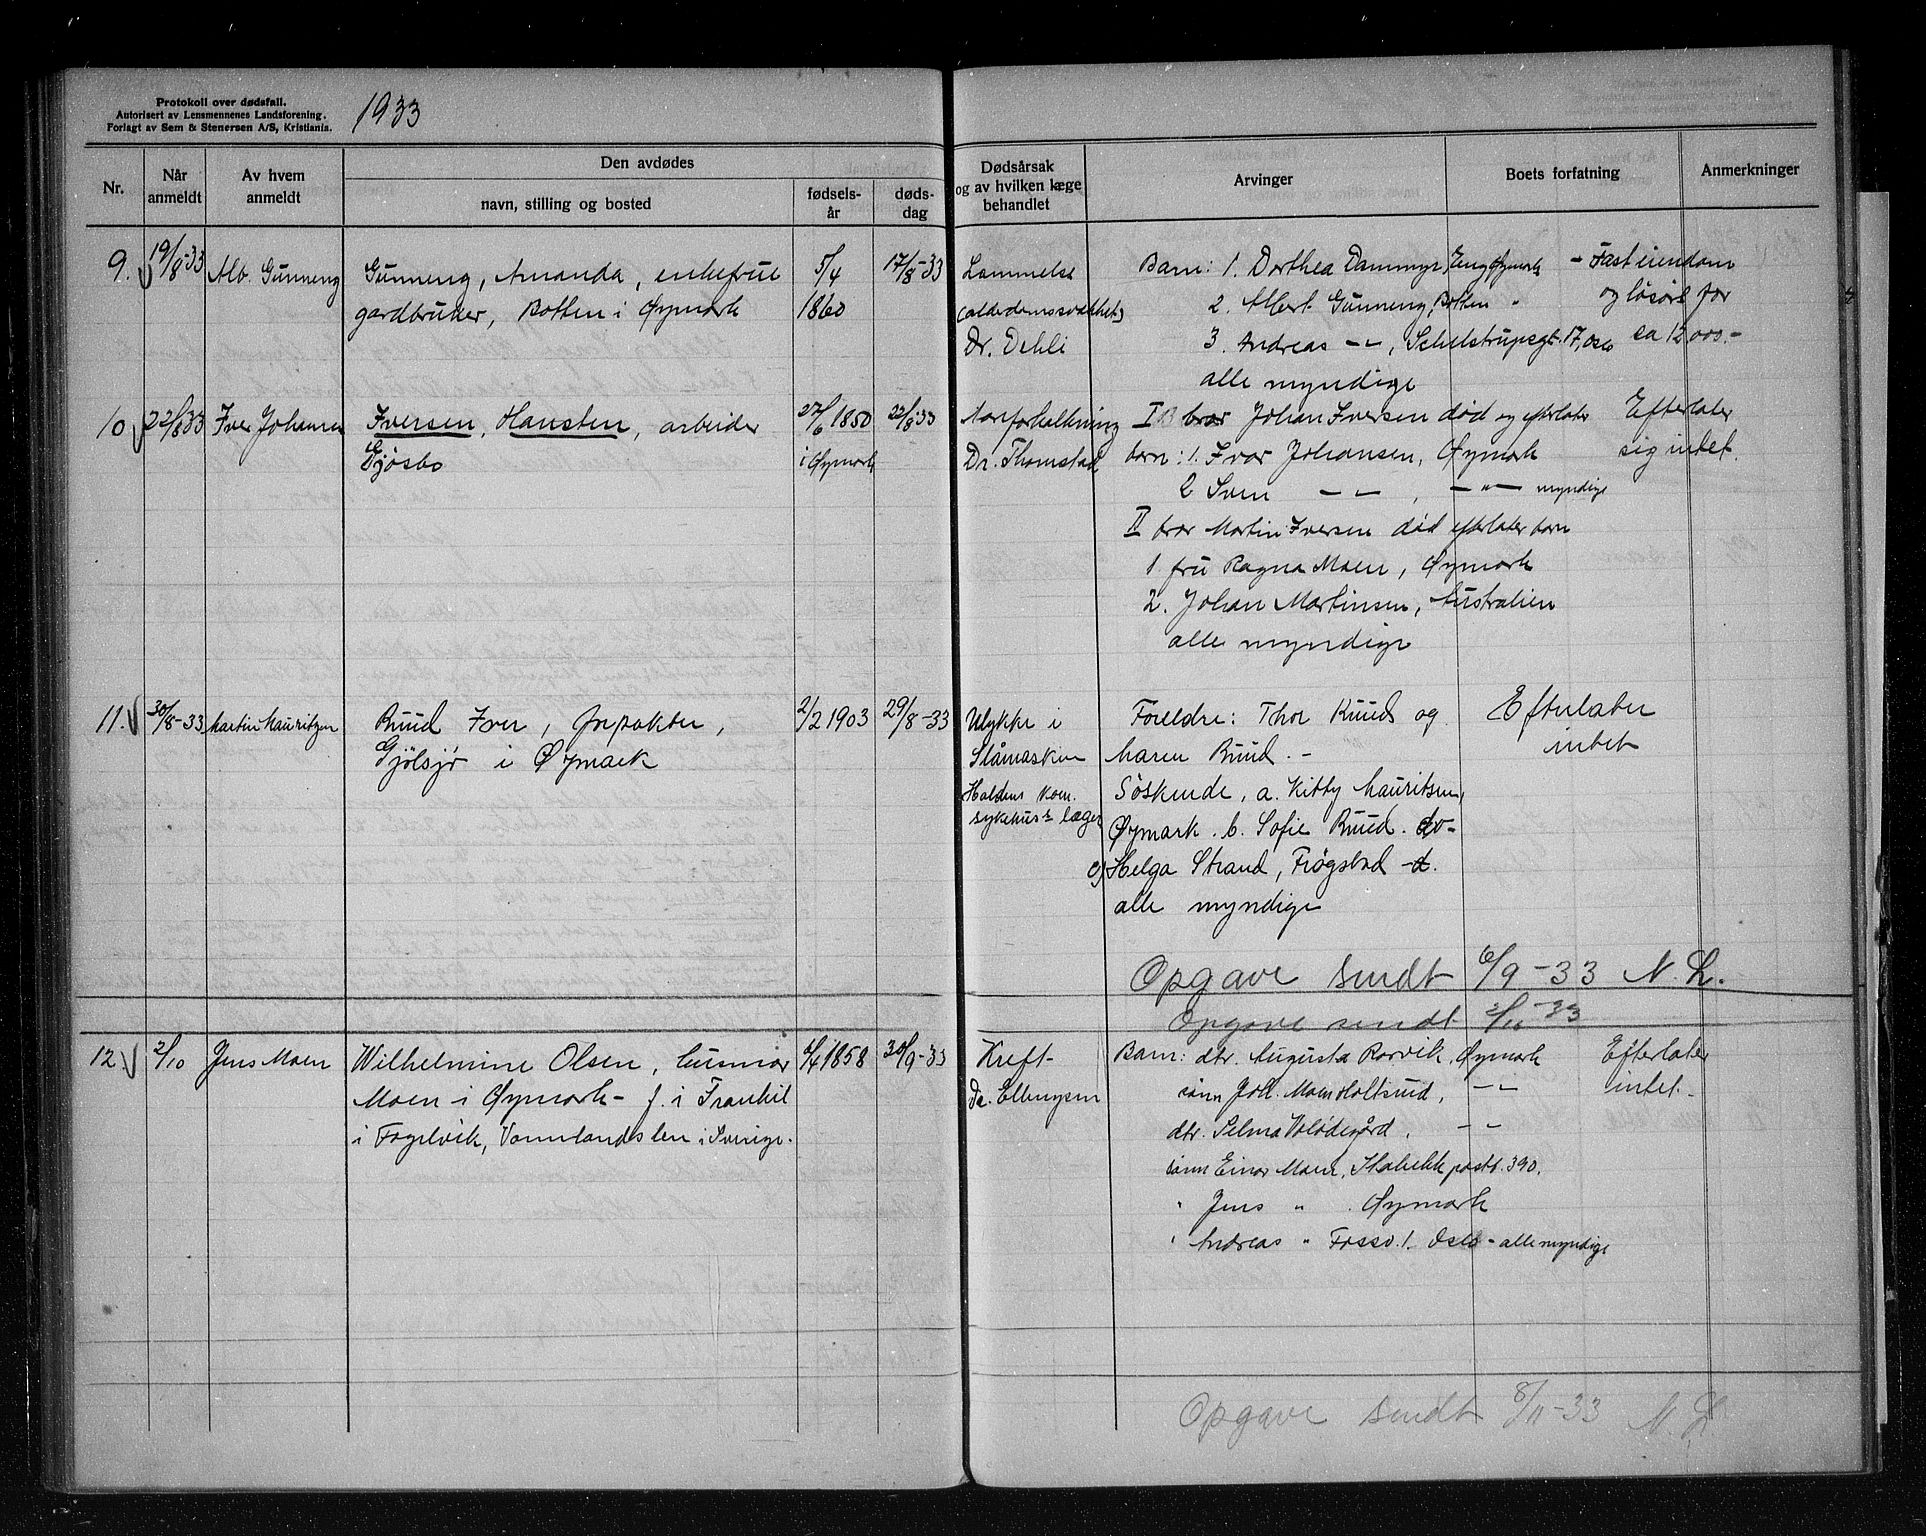 Protokoll over dødsfall.
Autorisert av Lensmennenes Landsforening.
Forlagt av Sem & Stenersen A/S, Kristiania.
1933
Nr.
Når anmeldt
Av hvem anmeldt
Den avdødes
navn, stilling og bosted
fødsels-år
døds-dag
Dødsårsak og av hvilken læge behandlet
Arvinger
Boets forfatning
Anmerkninger
9. 19/8-33 Alb. Gunneng
Gunneng, Amanda, enkefrue
gardbruker, Botten i Øymark
5/4
1860
17/8-33
Lammelse
(alderdomssvakhet)
Dr. Dehli
Barn: 1. Dorthea Dammyr, Eng Øymark
2. Albert Gunneng, Botten "
3. Andreas -"-, Schelstrupsgt. 17, Oslo
alle myndige
- Fast eiendom
og løsøre for
ca 12 000.-
10 22/8 33 Iver Johansen
Iversen, Hansten, arbeider
Gjøsbo
27/6 1850
i Øymark
22/8-33
Aareforkalkning
Dr. Thomstad
I bror Johan Iversen død og efterlater
barn: 1. Ivar Johansen, Øymark
2 Sven -"-, -"- myndige
II bror Martin Iversen død efterlater barn
1 fru Ragna Moen, Øymark
2. Johan Martinsen, Australien
alle myndige
Efterlater
sig intet.
11. 30/8-33 Martin Mauritzen
Ruud Iver, forpakter,
Gjølsjø i Øymark
2/2 1903
29/8-33
Ulykke i
Slåmaskin
Haldens kom.
sykehus's læger
Foreldre: Thor Ruud og
Maren Ruud. -
Søskende, a. Kitty Mauritsen,
Øymark. b. Sofie Ruud. do-
c) Helga Strand, Trøgstad -d.
alle myndige
Efterlater
intet
Opgave sendt 6/9-33 N. L.
Opgave sendt 2/10-33
12. 2/10 Jens Moen
Wilhelmine Olsen, husmor
Moen i Øymark - f. i Trankil
i Fogelvik, Vermlandslen i Sverige.
4/4 1858
30/9-33
Kreft-
Dr. Ellingsen
Barn: dtr. Augusta Rørvik, Øymark
sønn Joh. Moen Holtsrud, -"-
dtr. Selma Vólødegård, -"-
sønn Einar Moen, Slabekk postb. 390.
" Jens " . Øymark
" Andreas " Fossv. 1. Oslo - alle myndige
Efterlater
intet.
Opgave sendt 8/11-33 N. L.